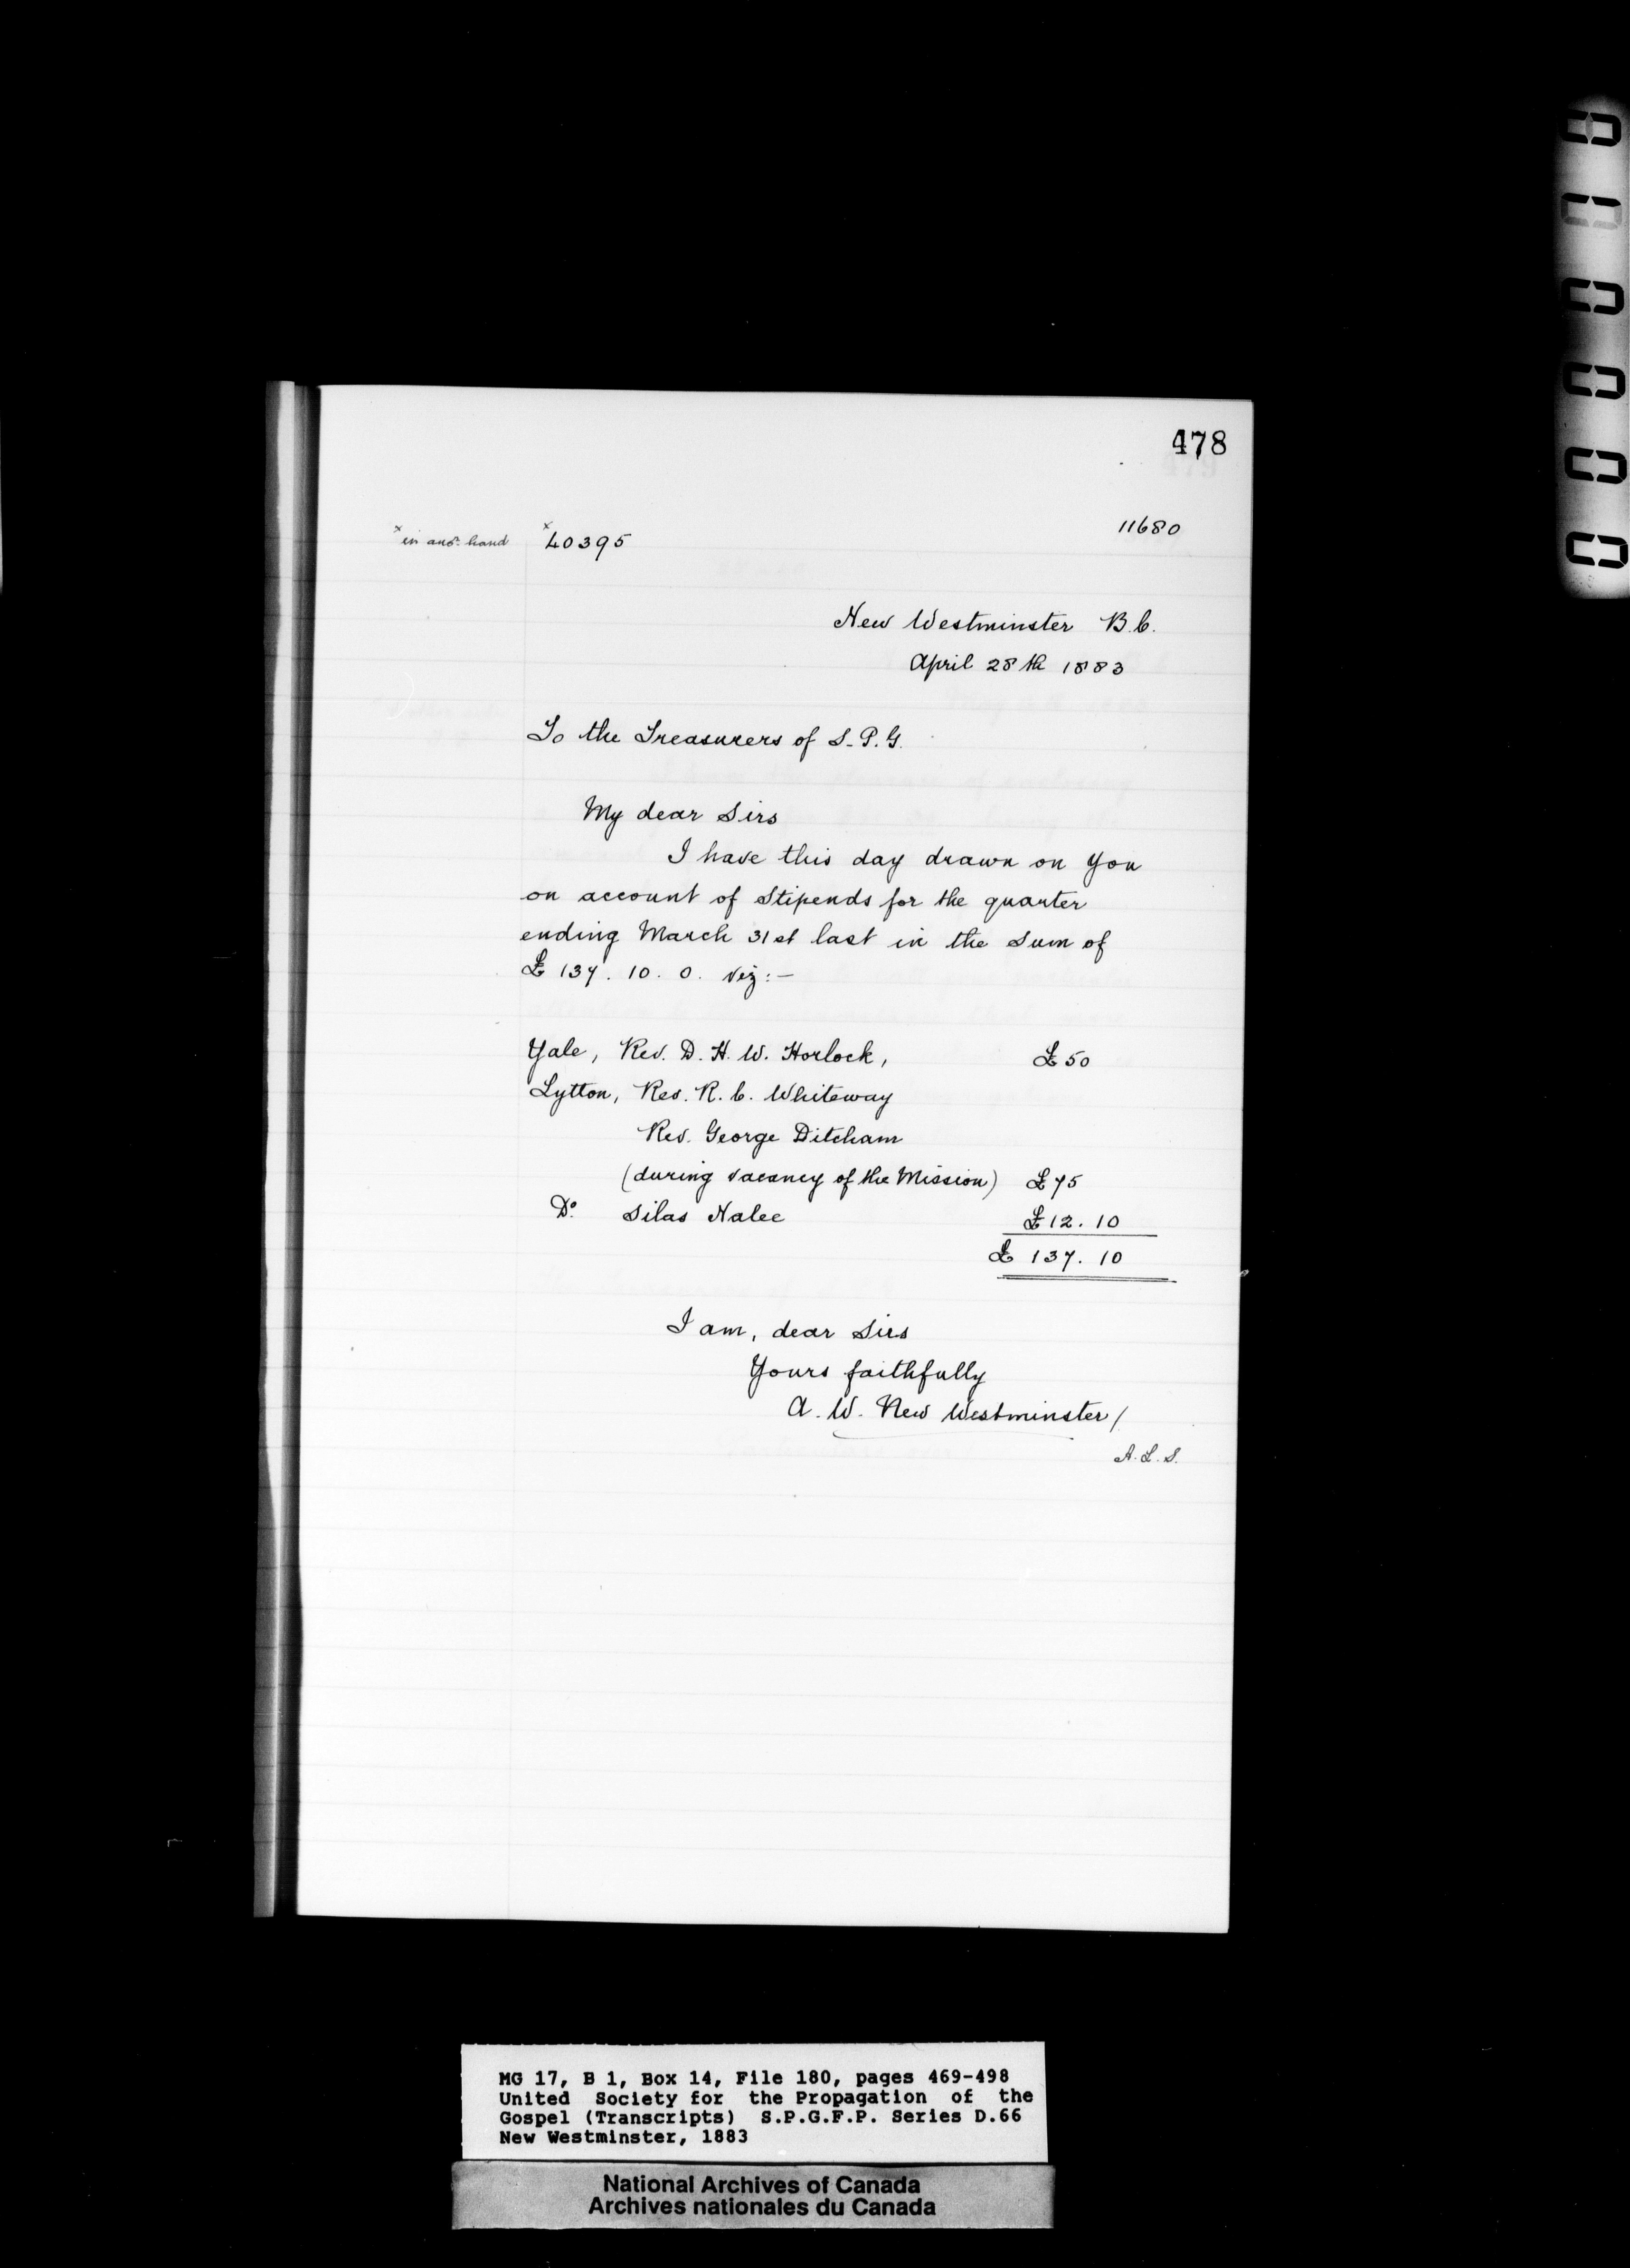 478
11680
*in anor. hand *40395
New Westminster B.C.
April 28th 1883
To the Treasurers of S.P.G.
My dear Sirs
I have this day drawn on you
on account of Stipends for the quarter
ending March 31st last in the Sum of
£137.10.0. viz:—
Yale, Rev. D. H. W. Horlock, £50
Lytton, Rev. R. C. Whiteway
Rev. George Ditcham
(during vacancy of the Mission) £75
Do. Silas Nalee £12.10
£137.10
I am, dear Sirs
Yours faithfully
A. W. New Westminster/
A.L.S.
MG 17, B 1, Box 14, File 180, pages 469-498
United Society for the Propagation of the
Gospel (Transcripts) S.P.G.F.P. Series D.66
New Westminster, 1883
National Archives of Canada
Archives nationales du Canada